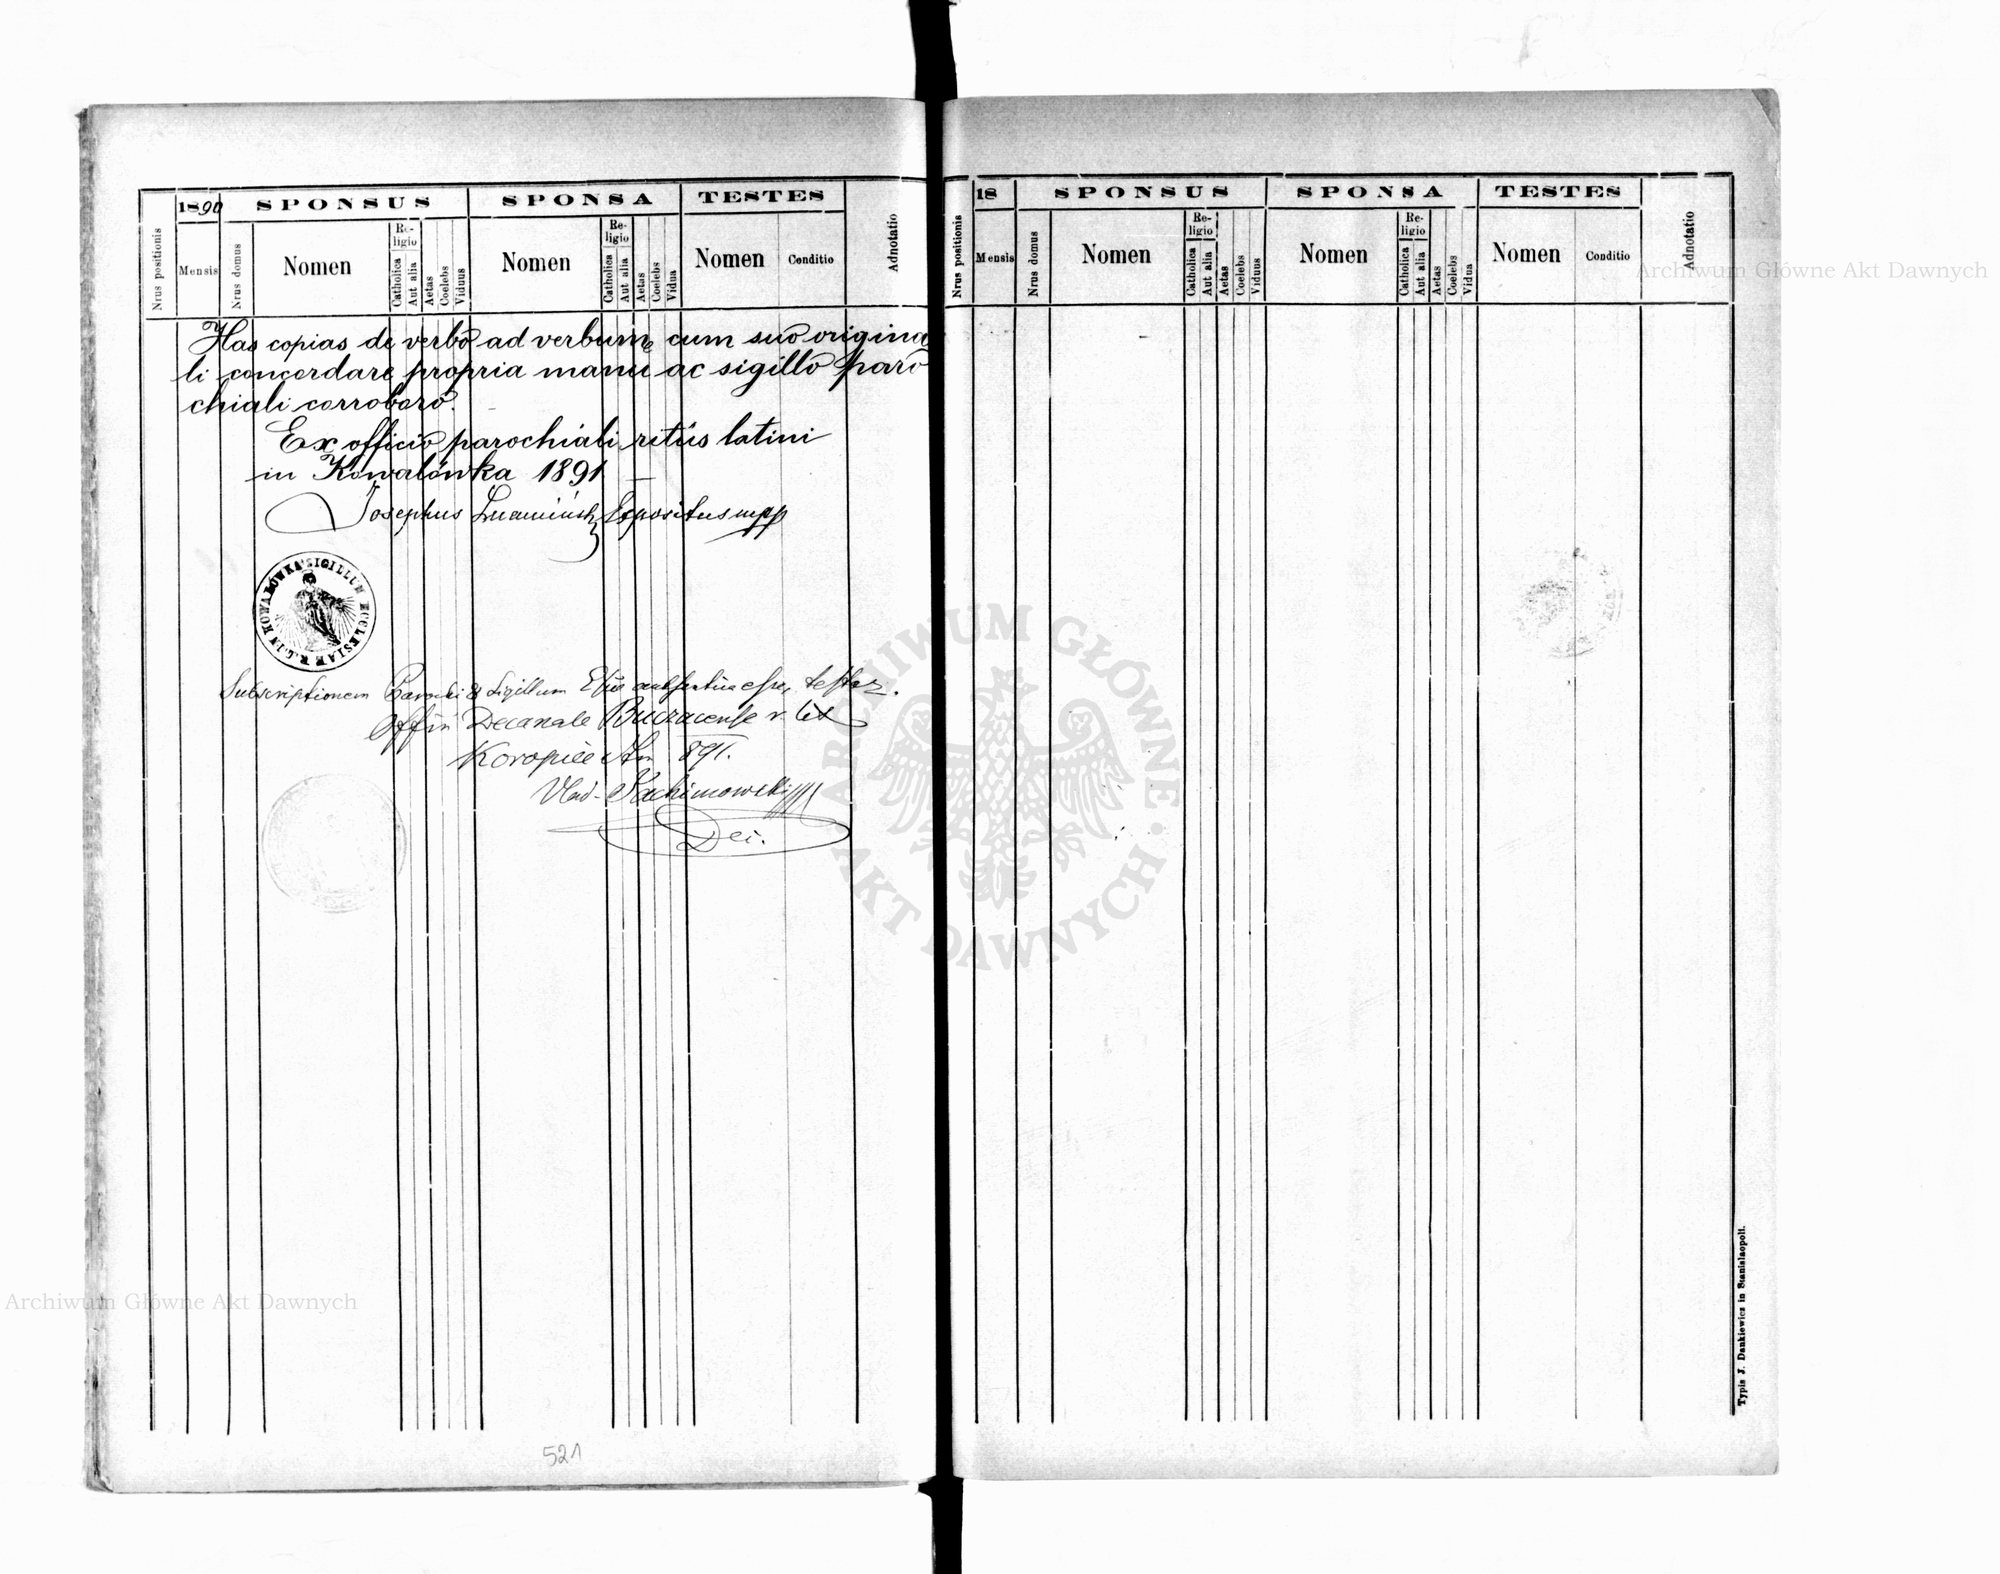 1890
SPONSUS
SPONSA
TESTES
Nrus positionis
Mensis
Nrus domus
Nomen
Religio
Catholica
Aut alia
Aetas
Coelebs
Viduus
Nomen
Religio
Catholica
Aut alia
Aetas
Coelebs
Vidua
Nomen
Conditio
Adnotatio
Has copias de verbo ad verbum cum suo origina
li concordare propria manu ac sigillo paro
chiali corroboro.
Ex officio parochiali ritus latini
in Kowalówka 1891.
Josephus Expositus mpp
SIGILLUM ECCLESIAE R. L. IN KOWALÓWKA
Subscriptionem Parochi & Sigillum testor.
Decanale Buczacense r. lat
Koropiec 891.
Vlad. Jachimowski
Dec.
521
18
SPONSUS
SPONSA
TESTES
Nrus positionis
Mensis
Nrus domus
Nomen
Religio
Catholica
Aut alia
Aetas
Coelebs
Viduus
Nomen
Religio
Catholica
Aut alia
Aetas
Coelebs
Vidua
Nomen
Conditio
Adnotatio
Typis J. Dankiewicz in Stanislaopoli.
Archiwum Główne Akt Dawnych
ARCHIWUM GŁÓWNE AKT DAWNYCH
Archiwum Główne Akt Dawnych